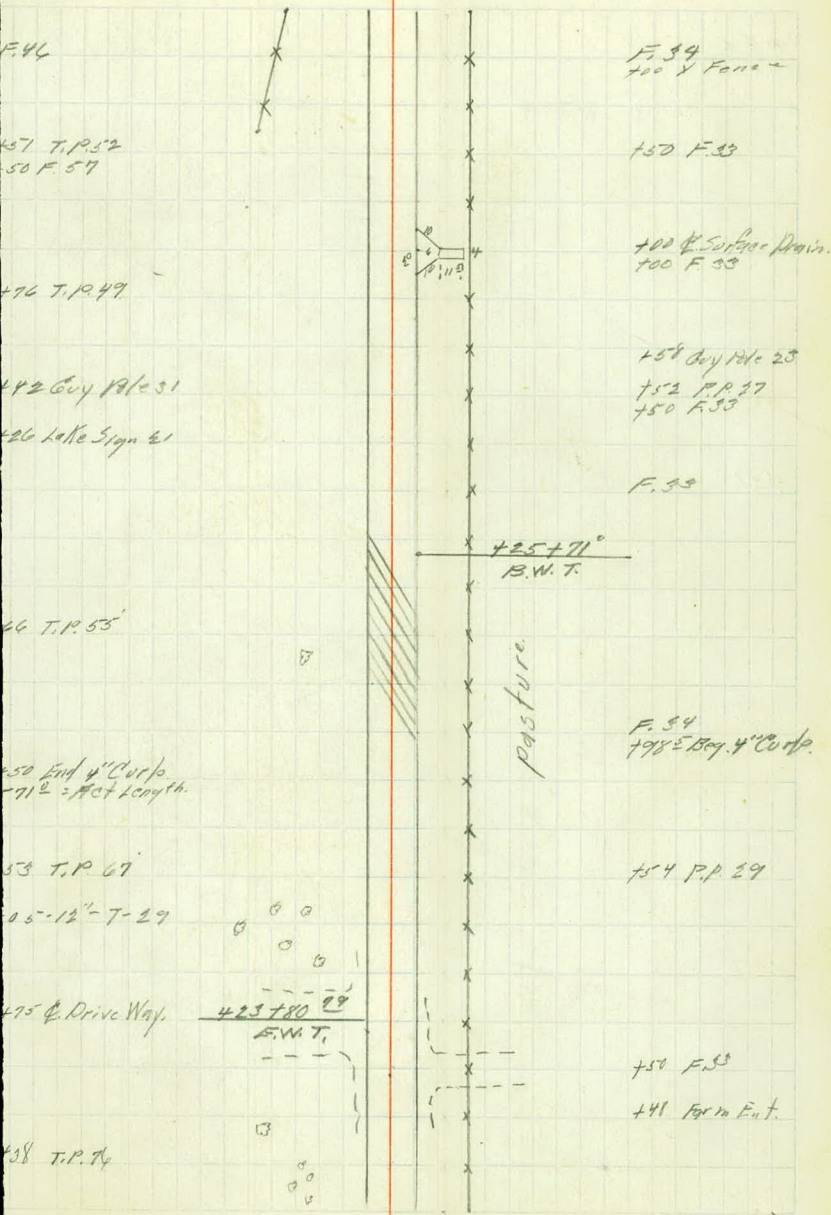 F.46
+51 T.P. 52
+50 F. 57
+76 T.P. 49
+42 Guy Pole 31
+26 Lake Sign 21
66 T.P. 55'
+50 End 4" Curb
-71º = Act Length.
53 T.P. 67'
05-12"-T-29
+75 ℄ Drive Way.
+38 T.P. 76
4
11'
425+71º
B.W.T.
pasture
423+80 99
E.W.T.
F. 34
+00 X Fence
+50 F. 33
+00 ℄ Surface Drain.
+00 F. 33
+58 Guy Pole 23
+52 P.P. 27
+50 F. 33
F. 33
F. 34
+98⁵ Beg. 4" Curb.
+54 P.P. 29
+50 F. 33
+41 Farm Ent.